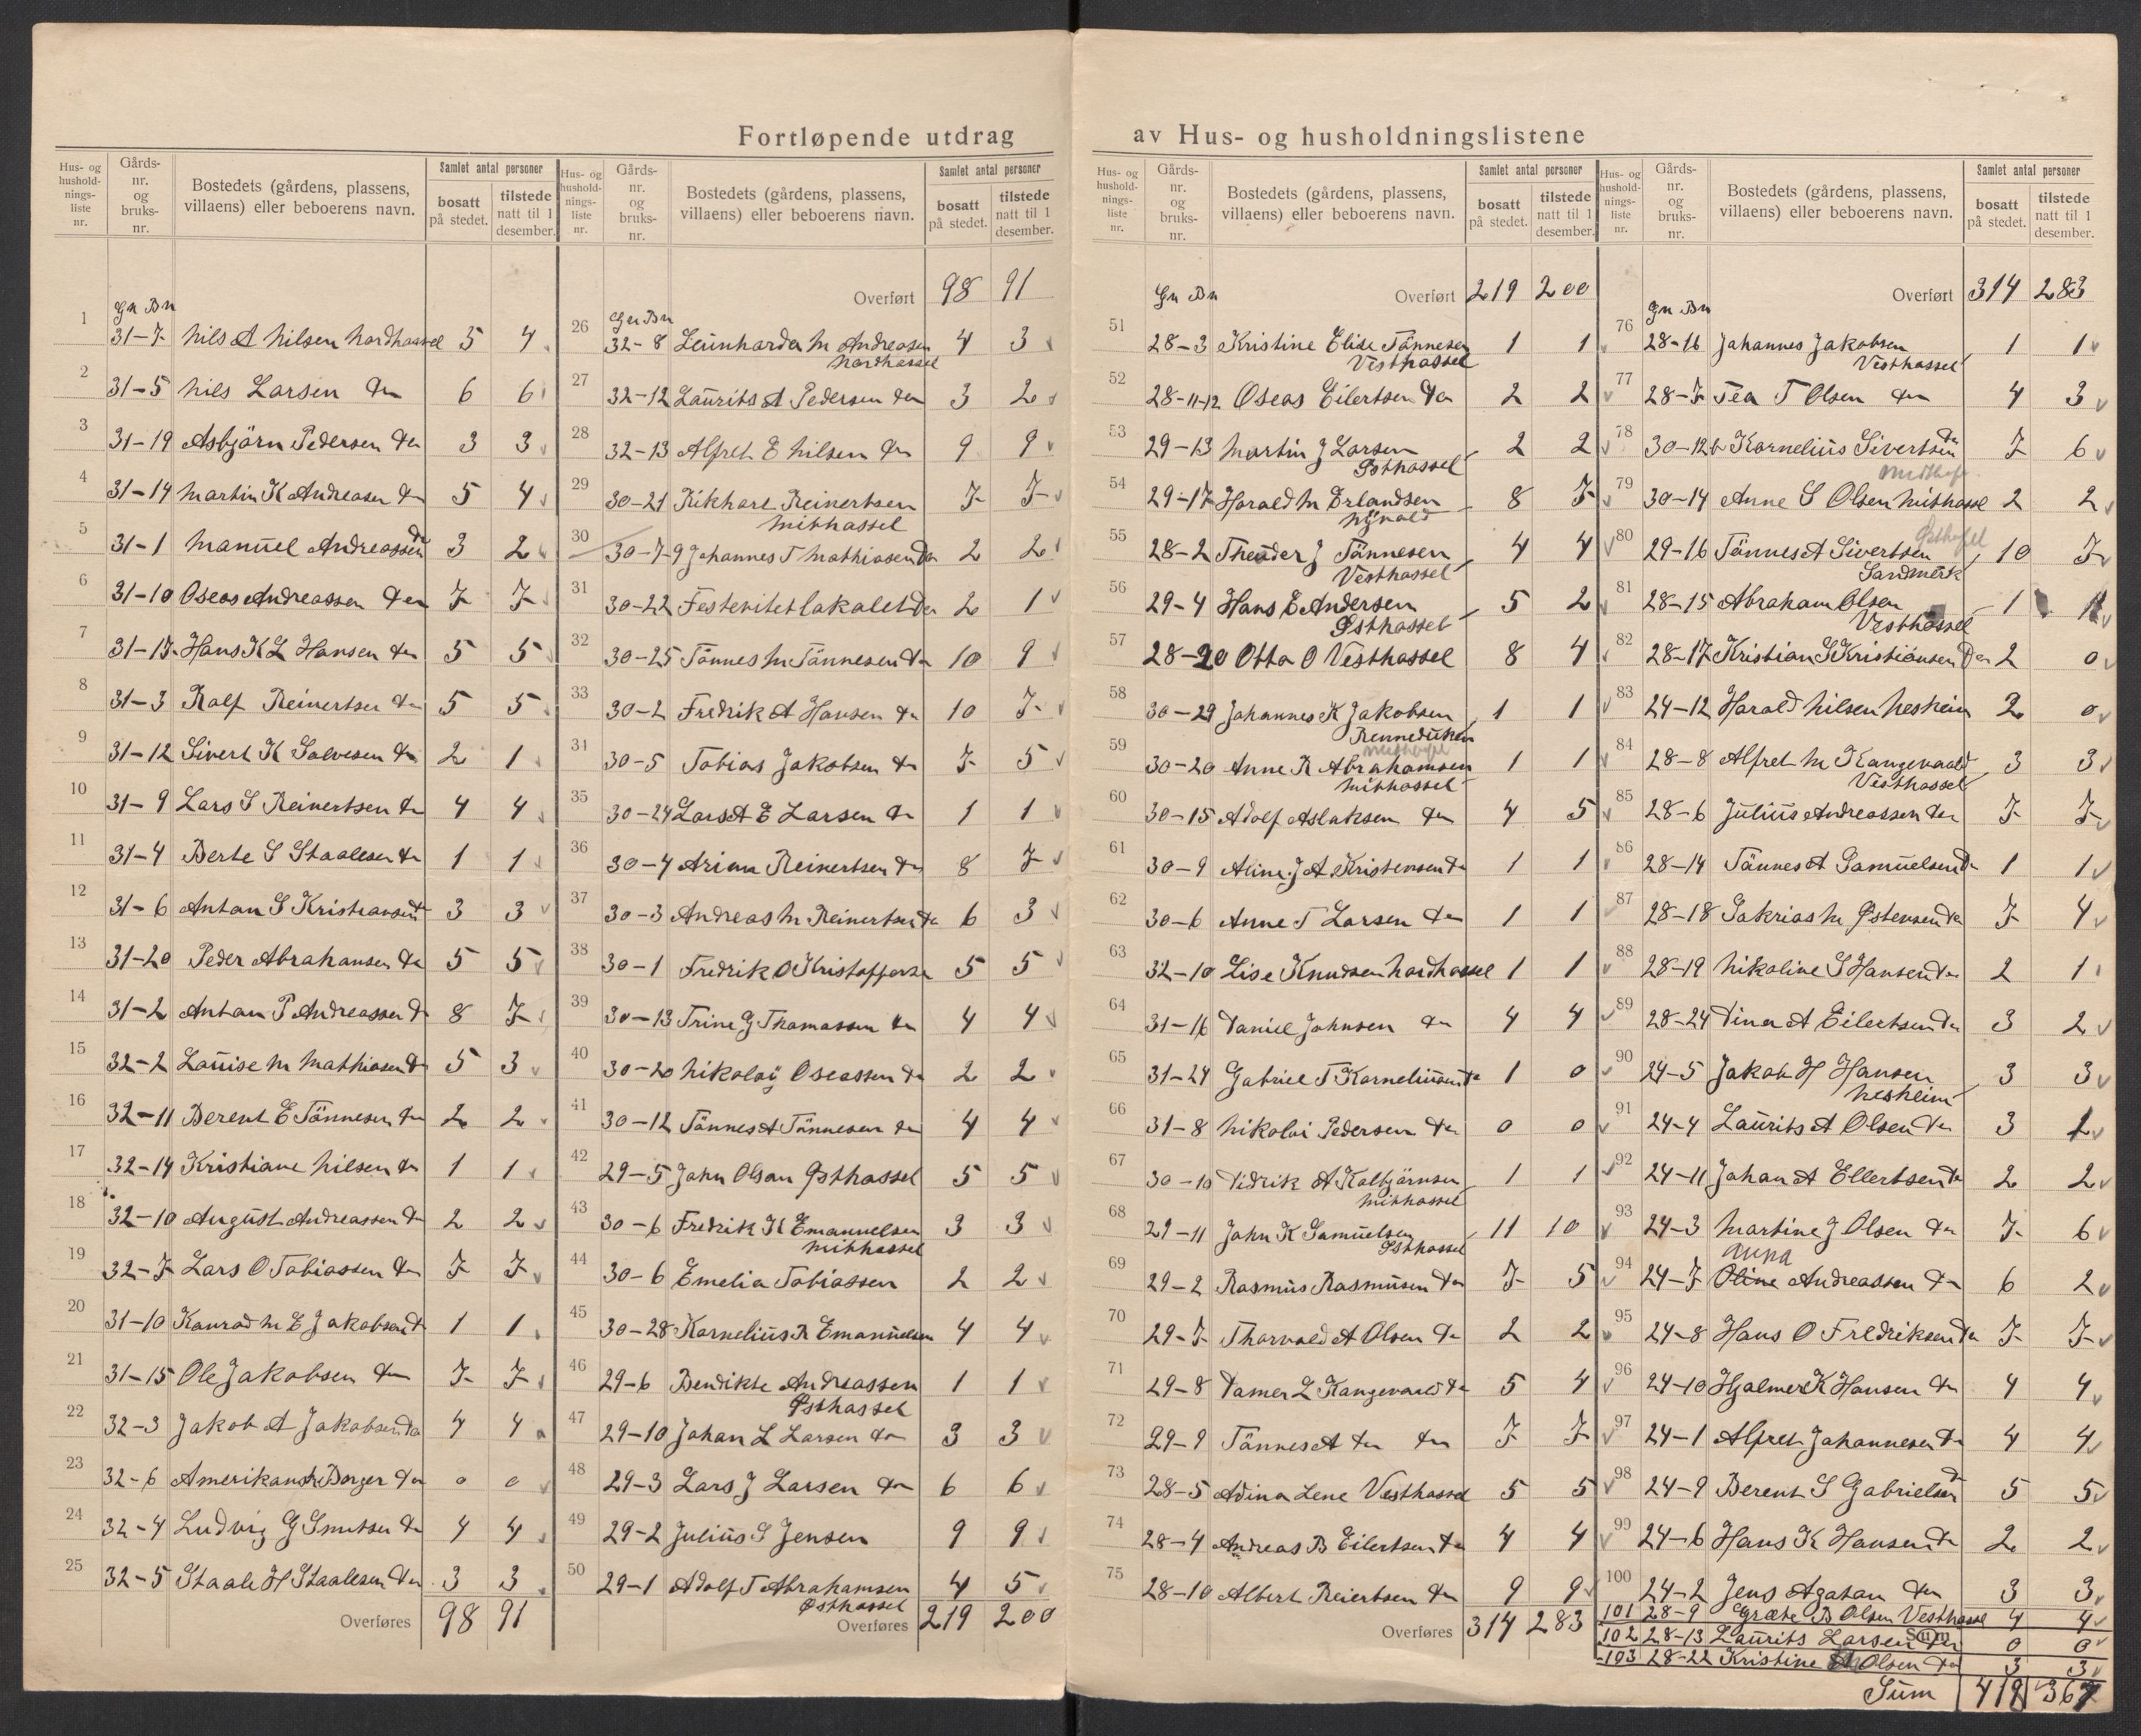 Fortløpende utdrag av Hus- og husholdningslistene
Hus- og husholdnings- liste nr. Gårds- nr. og bruks- nr. Bostedets (gårdens, plassens, villaens) eller beboerens navn. Samlet antal personer bosatt på stedet. tilstede natt til 1 desember.
Gn Bn
1 31-7 Nils A Nilsen Nordhassel 5 4
2 31-5 Nils Larsen Do 6 6
3 31-19 Asbjörn Pedersen Do 3 3
4 31-14 Martin K Andreasen Do 5 4
5 31-1 Manuel Andreassen Do 3 2
6 31-10 Oseas Andreassen Do 7 7
7 31-17 Hans K L Hansen Do 5 5
8 31-3 Ralf Reinertsen Do 5 5
9 31-12 Sivert K Salvesen Do 2 1
10 31-9 Lars S Reinertsen Do 4 4
11 31-4 Berte S Staalesen Do 1 1
12 31-6 Anton S Kristiansen Do 3 3
13 31-20 Peder Abrahansen Do 5 5
14 31-2 Anton P Andreassen Do 8 7
15 32-2 Louise M Mathiasen Do 5 3
16 32-11 Berent E Tönnesen Do 2 2
17 32-14 Kristiane Nilsen Do 1 1
18 32-10 August Andreassen Do 2 2
19 32-7 Lars O Tobiassen Do 7 7
20 31-10 Konrad M E Jakobsen Do 1 1
21 31-15 Ole Jakobsen Do 7 7
22 32-3 Jakob A Jakobsen Do 4 4
23 32-6 Amerikansk Borger Do 0 0
24 32-4 Ludvig G Do 4 4
25 32-5 Staale H Staalesen Do 3 3
Overføres 98 91
Hus- og husholdnings- liste nr. Gårds- nr. og bruks- nr. Bostedets (gårdens, plassens, villaens) eller beboerens navn. Samlet antal personer bosatt på stedet. tilstede natt til 1 desember.
Overført 98 91
Gn Bn
26 32-8 Leünharda M Andreasen Nordhassel 4 3
27 32-12 Laurits A Pedersen Do 3 2
28 32-13 Alfret E Nilsen Do 9 9
29 30-21 Rikhart Reinertsen Mithassel 7 7
30 30-7-9 Johannes T Mathiasen Do 2 2
31 30-22 Festevitetlokalet Do 2 1
32 30-25 Tönnes M Tönnesen Do 10 9
33 30-2 Fredrik A Hansen Do 10 7
34 30-5 Tobias Jakobsen Do 7 5
35 30-24 Lars A E Larsen Do 1 1
36 30-4 Arian Reinertsen Do 8 7
37 30-3 Andreas M Reinertsen Do 6 3
38 30-1 Fredrik O Kristoffersen 5 5
39 30-13 Trine G Thomassen Do 4 4
40 30-20 Nikolaj Oseassen Do 2 2
41 30-12 Tönnes A Tönnesen Do 4 4
42 29-5 John Olsen Østhassel 5 5
43 30-6 Fredrik K Emanuelsen Mithassel 3 3
44 30-6 Emelia Tobiassen 2 2
45 30-28 Kornelius R Emanuelsen 4 4
46 29-6 Bendikte Andreassen Østhassel 1 1
47 29-10 Johan L Larsen Do 3 3
48 29-3 Lars J Larsen Do 6 6
49 29-2 Julius S Jensen 9 9
50 29-1 Adolf T Abrahamsen Østhassel 4 5
Overføres 219 200
Hus- og husholdnings- liste nr. Gårds- nr. og bruks- nr. Bostedets (gårdens, plassens, villaens) eller beboerens navn. Samlet antal personer bosatt på stedet. tilstede natt til 1 desember.
Gn Bn Overført 219 200
51 28-3 Kristine Elise Tönnesen Vesthassel 1 1
52 28-11-12 Oseas Eilertsen Do 2 2
53 29-13 Martin J Larsen Østhassel 2 2
54 29-17 Harald M Erlandsen Nyvold 8 7
55 28-2 Theoder J Tönnesen Vesthassel 4 4
56 29-4 Hans E Andersen Østhassel 5 2
57 28-20 Otto O Vesthassel 8 4
58 30-29 Johannes K Jakobsen 1 1
59 30-20 Anne R Abrahamsen Mithassel 1 1
60 30-15 Adolf Aslaksen Do 4 5
61 30-9 Aline J A Kristensen Do 1 1
62 30-6 Anne T Larsen Do 1 1
63 32-10 Lise Knudsen Nordhassel 1 1
64 31-16 Daniel Johnsen Do 4 4
65 31-24 Gabriel T Korneliussen Do 1 0
66 31-8 Nikolai Pedersen Do 0 0
67 30-10 Didrik A Kolbjörnsen Mithassel 1 1
68 29-11 John K Samuelsen Østhassel 11 10
69 29-2 Rasmus Rasmusen Do 7 5
70 29-7 Thorvald A Olsen Do 2 2
71 29-8 Damer L Kangevald Do 5 4
72 29-9 Tönnes A Do Do 7 7
73 28-5 Adina Lene Vesthassel 5 5
74 28-4 Andreas B Eilertsen Do 4 4
75 28-10 Albert Reiertsen Do 9 9
Overføres 314 283
Hus- og husholdnings- liste nr. Gårds- nr. og bruks- nr. Bostedets (gårdens, plassens, villaens) eller beboerens navn. Samlet antal personer bosatt på stedet. tilstede natt til 1 desember.
Overført 314 283
Gn Bn
76 28-16 Johannes Jakobsen Vesthassel 1 1
77 28-7 Tea T Olsen Do 4 3
78 30-12b Kornelius Sivertsen Do 7 6
79 30-14 Anne S Olsen Mithassel 2 2
80 29-16 Tönnes A Sivertsen Sandmerk 10 7
81 28-15 Abraham Olsen Vesthassel 1 1
82 28-17 Kristian S Kristiansen Do 2 0
83 24-12 Harald Nilsen Nesheim 2 0
84 28-8 Alfret M Kangevald Vesthassel 3 3
85 28-6 Julius Andreassen Do 7 7
86 28-14 Tönnes A Samuelsen Do 1 1
87 28-18 Sakrias M Østensen Do 7 4
88 28-19 Nikoline S Hansen Do 2 1
89 28-24 Dina A Eilertsen Do 3 2
90 24-5 Jakob H Hansen Nesheim 3 3
91 24-4 Laurits A Olsen Do 3 1
92 24-11 Johan A Ellertsen Do 2 2
93 24-3 Martine J Olsen Do 7 6
94 24-7 Anna Oline Andreassen Do 6 2
95 24-8 Hans O Fredriksen Do 7 7
96 24-10 Hjalmer K Hansen Do 4 4
97 24-1 Alfret Johannesen Do 4 4
98 24-9 Berent S Gabrielsen Do 5 5
99 24-6 Hans K Hansen Do 2 2
100 24-2 Jens Agatan Do 3 3
101 28-9 Græte B Olsen Vesthassel 4 4
102 28-13 Laurits Larsen Do Sum 0 0
103 28-22 Kristine Olsen Do 3 3
Sum 418 367